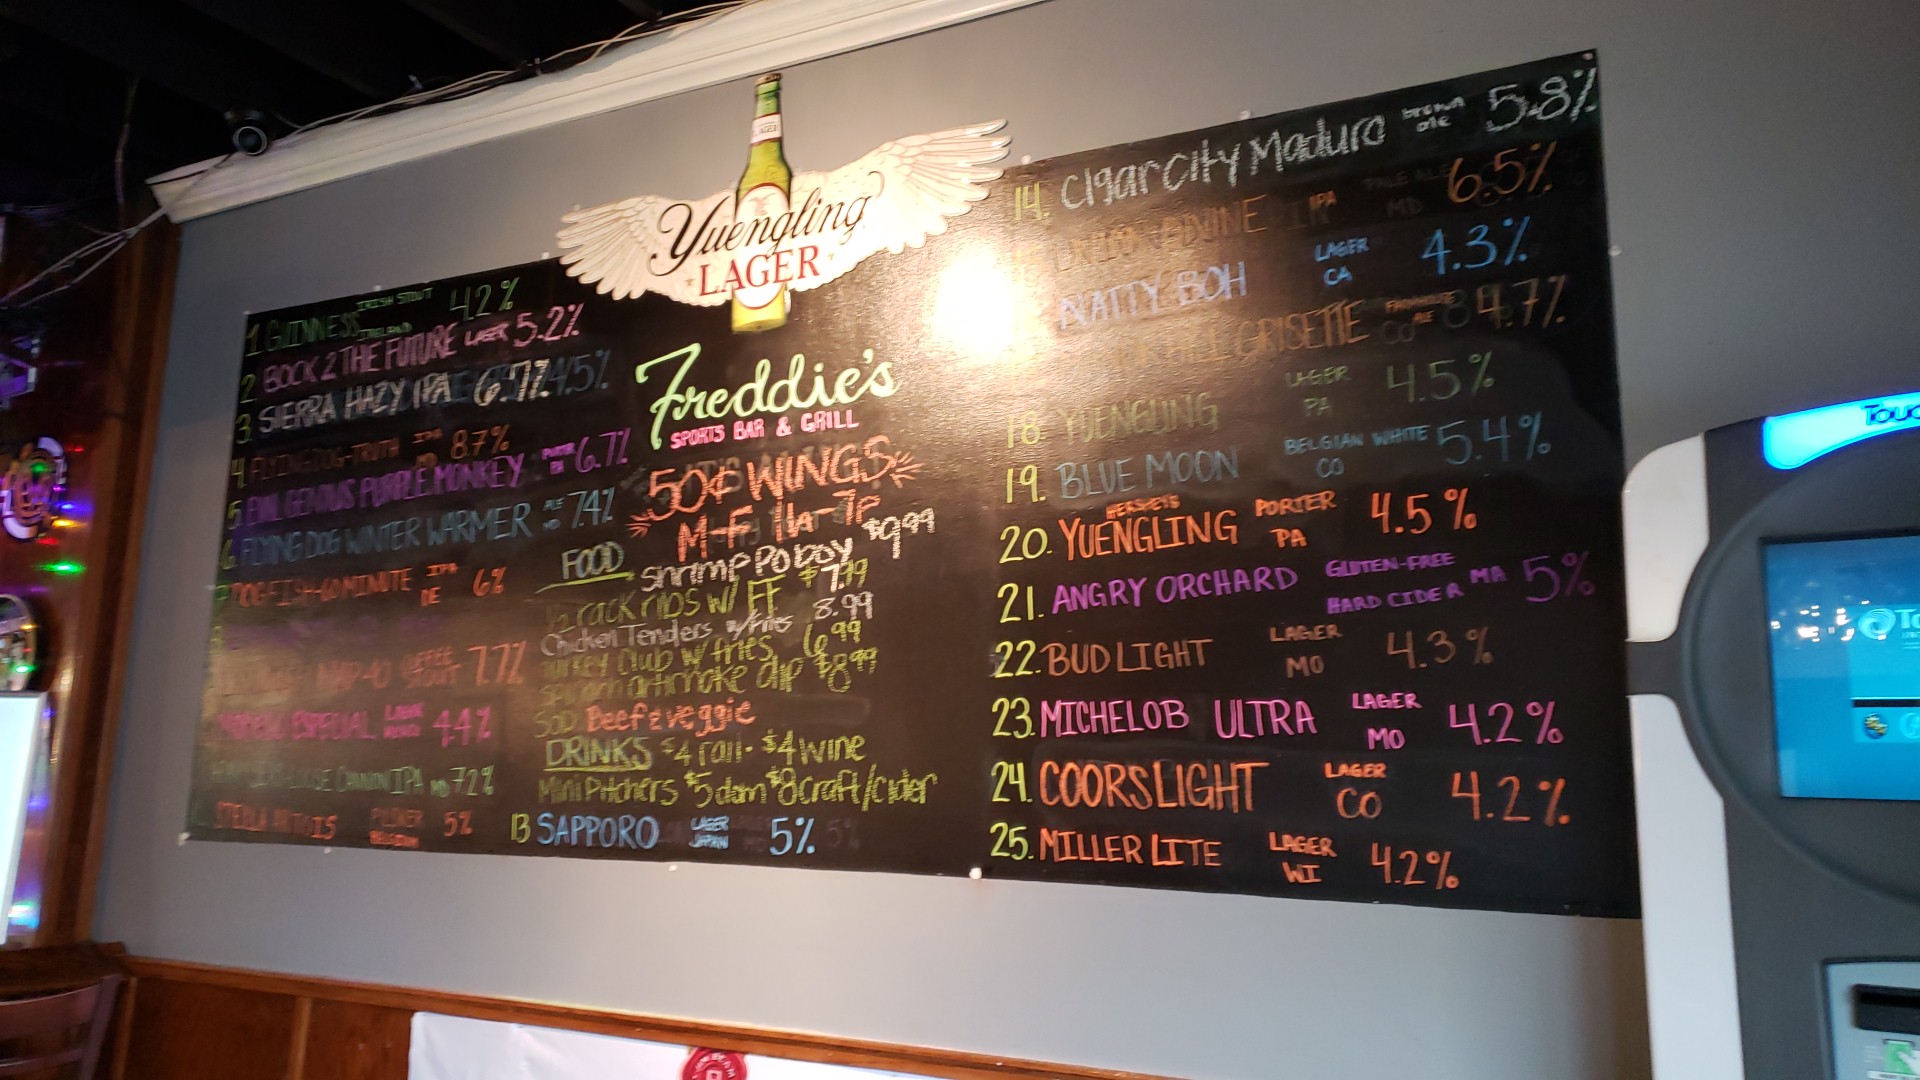 Yuengling
LAGER
1 GUINNESS IRISH STOUT IRELAND 4.2%
2 BOCK 2 THE FUTURE LAGER 5.2%
3. SIERRA HAZY IPA 6.7%
4. FLYING DOG-TRUTH IPA MD 8.7%
5 EVIL GENIUS PURPLE MONKEY PORTER PA 6.7%
6 FLYING DOG WINTER WARMER ALE MD 7.4%
7 DOGFISH-60 MINUTE IPA DE 6%
COFFEE STOUT 7.7%
ESPECIAL 4.4%
HEAVY SEAS LOOSE CANNON IPA MD 7.2%
STELLA ARTOIS PILSNER BELGIUM 5%
Freddie's
SPORTS BAR & GRILL
50¢ WINGS
M-F 11a-7p
FOOD
Shrimp PO BOY $9.99
½ rack ribs w/ FF $7.99
Chicken Tenders w/fries 8.99
turkey club w/ fries 6.99
spinach artichoke dip $8.99
SOD Beef & veggie
DRINKS $4 rail - $4 wine
Mini Pitchers $5 dom $8 craft/cider
13 SAPPORO LAGER JAPAN 5%
14. Cigar City Maduro brown ale 5.8%
DIVINE IPA 6.5%
NATTY BOH LAGER CA 4.3%
GRISETTE FARMHOUSE ALE 4.7%
18 YUENGLING LAGER PA 4.5%
19. BLUE MOON BELGIAN WHITE CO 5.4%
20. HERSHEY'S YUENGLING PORTER PA 4.5%
21. ANGRY ORCHARD GLUTEN-FREE HARD CIDER MA 5%
22. BUD LIGHT LAGER MO 4.3%
23. MICHELOB ULTRA LAGER MO 4.2%
24. COORS LIGHT LAGER CO 4.2%
25. MILLER LITE LAGER WI 4.2%